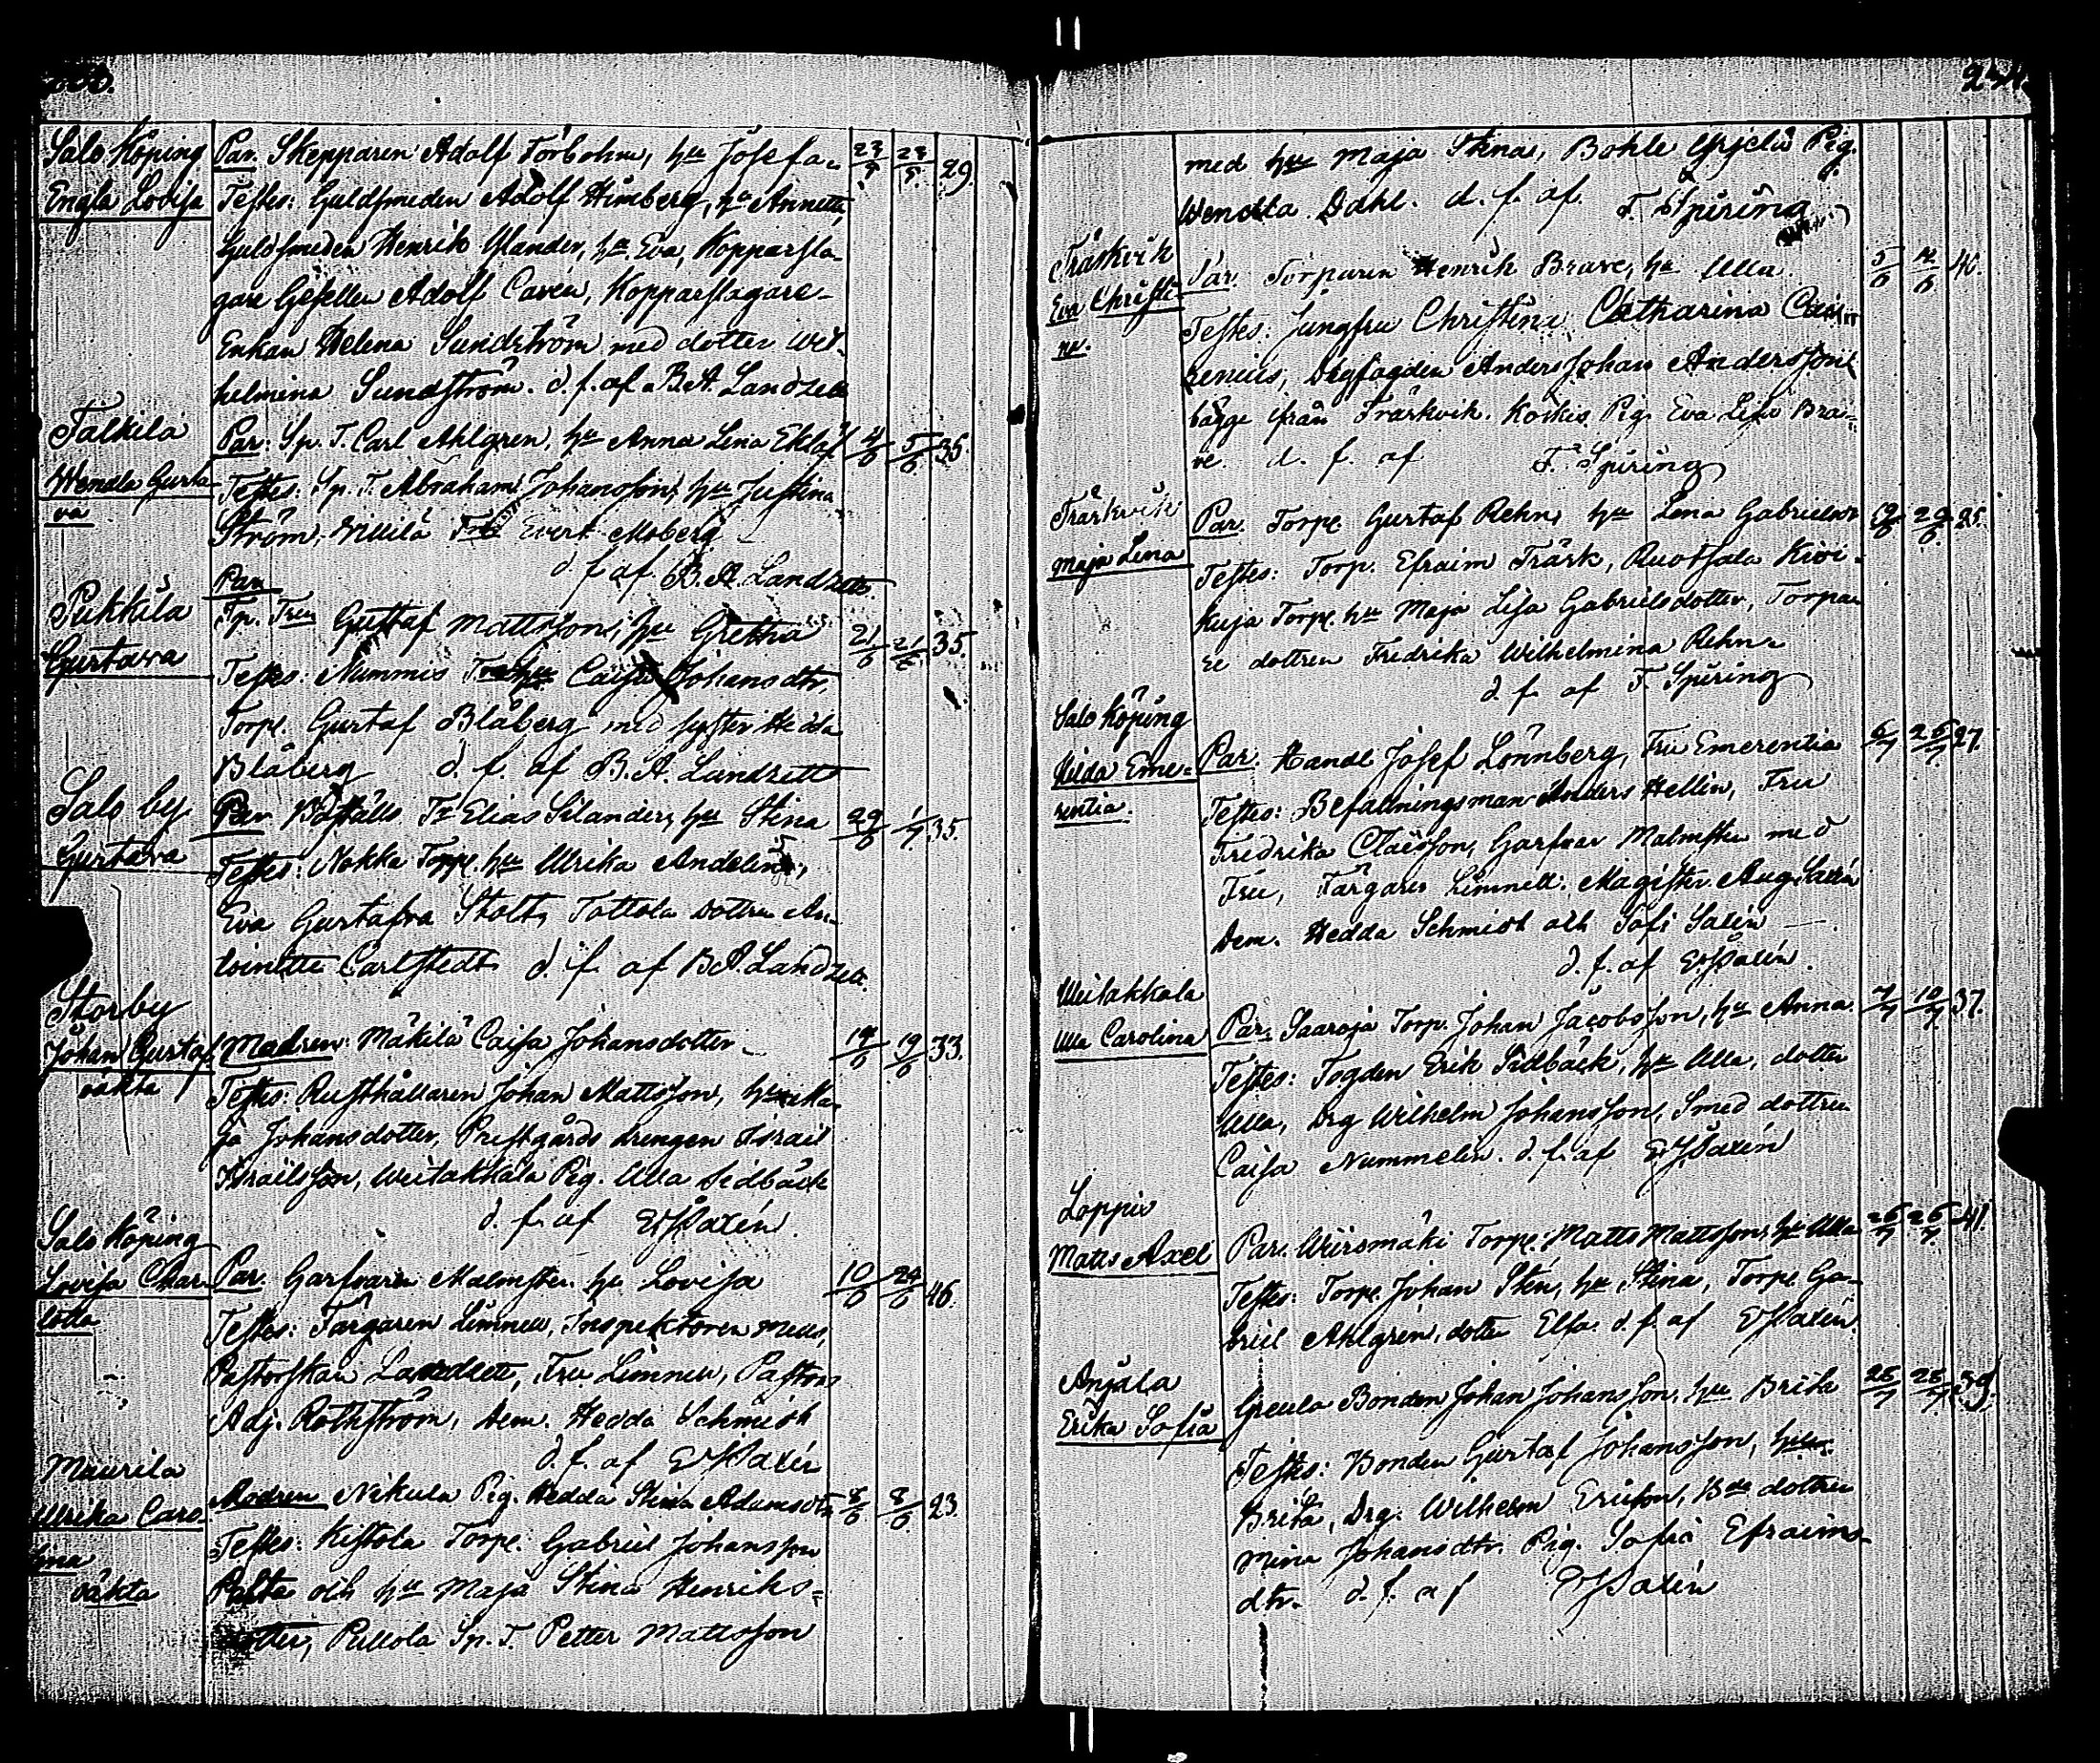 Salo Köping
Engla Lovisa
Par. Skepparen Adolf Törbohm, hu Josefa 23/5 28/5 29.
Testes: Guldsmeden Adolf Himberg, hu Annette,
Guldsmeden Henrik Ylander, hu Eva, Kopparsla-
gare Gesellen Adolf Cavén, Kopparslagare-
Enkan Helena Sundström med dotter Wil-
helmina Sundström. d. f. af B. A. Landzett
Talkila
Wendla Gusta-
va
Par: Sp. T. Carl Ahlgren, hu Anna Lena Eklöf 4/6 5/6 35.
Testes: Sp. T. Abraham Johansson, hu Justina
Ström, Evert Moberg
d. f. af B. A. Landzett
Pukkila
Gustava
Par
Sp. Gustaf Mattsson, hu Gretha 21/6 21/6 35.
Testes: Nummis Caisa Johansdtr,
Torp. Gustaf Blåberg med syster Hedda
Blåberg d. f. af B. A. Landzett
Salo by
Gustava
Par Elias Silander, hu Stina 29/6 1/7 35
Testes: Nokka Torp. hu Ulrika Andelin,
Eva Gustafva Stolt, Tottola dottren An-
toinette Carlstedt d. f. af B. A. Landzett
Storby
Johan Gustaf
oäkta
Modren: Mäkilä Caisa Johansdotter 19/6 33.
Testes: Rusthållaren Johan Mattsson, hu Ma-
ja Johansdotter, Prestgårds drengen Israel
Israelsson, Weitakkala Pig. Ulla Sidbäck
d. f. af
Salo Köping
Lovisa Char-
lotta
Par. Garfvaren Malmsten hu Lovisa 10/6 24/6 26.
Testes: Färgaren Limnell, Inspektoren
Pastorskan Landzett, Fru Limnell, Pastors
Adj. Rothström, Dem. Hedda Schmidt
d. f. af
Maurila
Ulrika Caro-
lina
oäkta
Modren Nikula Pig. Hedda Stina Adamsdtr 8/6 8/6 23.
Testes: Kistola Torp. Gabriel Johansson
Palta och hu Maja Stina Henriks-
dotter, Pullola Sp. T. Petter Mattsson
med hu Maja Stina, Pig.
Wendla Dahl. d. f. af F. Spiring
Träskvik
Eva Christi-
na.
Par. Torparen Henrik Brave, hu Ulla 5/6 40.
Testes: Jungfru Christina Catharina
Anders Johan Andersson
bägge från Träskvik. Pig. Eva Lisa Bra-
ve. d. f. af F. Spiring
Träskvik
Maja Lena
Par. Torp. Gustaf Rehn, hu Lena Gabrielsdr 25.
Testes: Torp. Efraim Träsk, Ruotsala Kivi-
kuja Torp. hu Maja Lisa Gabrielsdotter, Torpa-
re dottren Fredrika Wilhelmina Rehn
d. f. af F. Spiring
Salo Köping
Hilda Eme-
rentia.
Par. Handl Josef Lönnberg, Fru Emerentia 6/7 26/7 27.
Testes: Befallningsman Anders Hellin, Fru
Fredrika Claësson, Garfvar Malmsten med
Fru, Färgaren Limnell, Magister Aug. Salén
Dem. Hedda Schmidt och Sofi Salén
d. f. af
Weitakkala
Ulla Carolina
Par. Saaroja Torp. Johan Jacobsson, hu Anna 7/7 10/7 37.
Testes: Fogden Erik Sidbäck, hu Ulla, dotter
Ulla, Drg Wilhelm Johansson, Smed dottren
Caisa Nummelin. d. f. af
Loppis
Matts Axel
Par. Torp. Matts Mattsson, hu Ulla 26/7 26/7 41.
Testes: Torp. Johan Stén, hu Stina, Torp. Ga-
briel Ahlgrén, dotter Elsa. d. f. af
Anjala
Erika Sofia
Greula Bonden Johan Johansson, hu Brita 26/7 26/7 39.
Testes: Bonden Gustaf Johansson, hu
Brita, Drg. Wilhelm Ericsson, Bde dottren
Mina Johansdtr. Pig. Sofia Efraims-
dtr. d. f. af